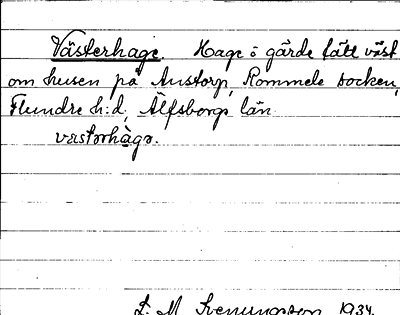 Västerhage. Hage o gärde tätt väst
om husen på Anstorp, Rommele socken,
Flundre h:d, Älfsborgs län.
västorhàgo.
L. M. Svenungsson 1934.